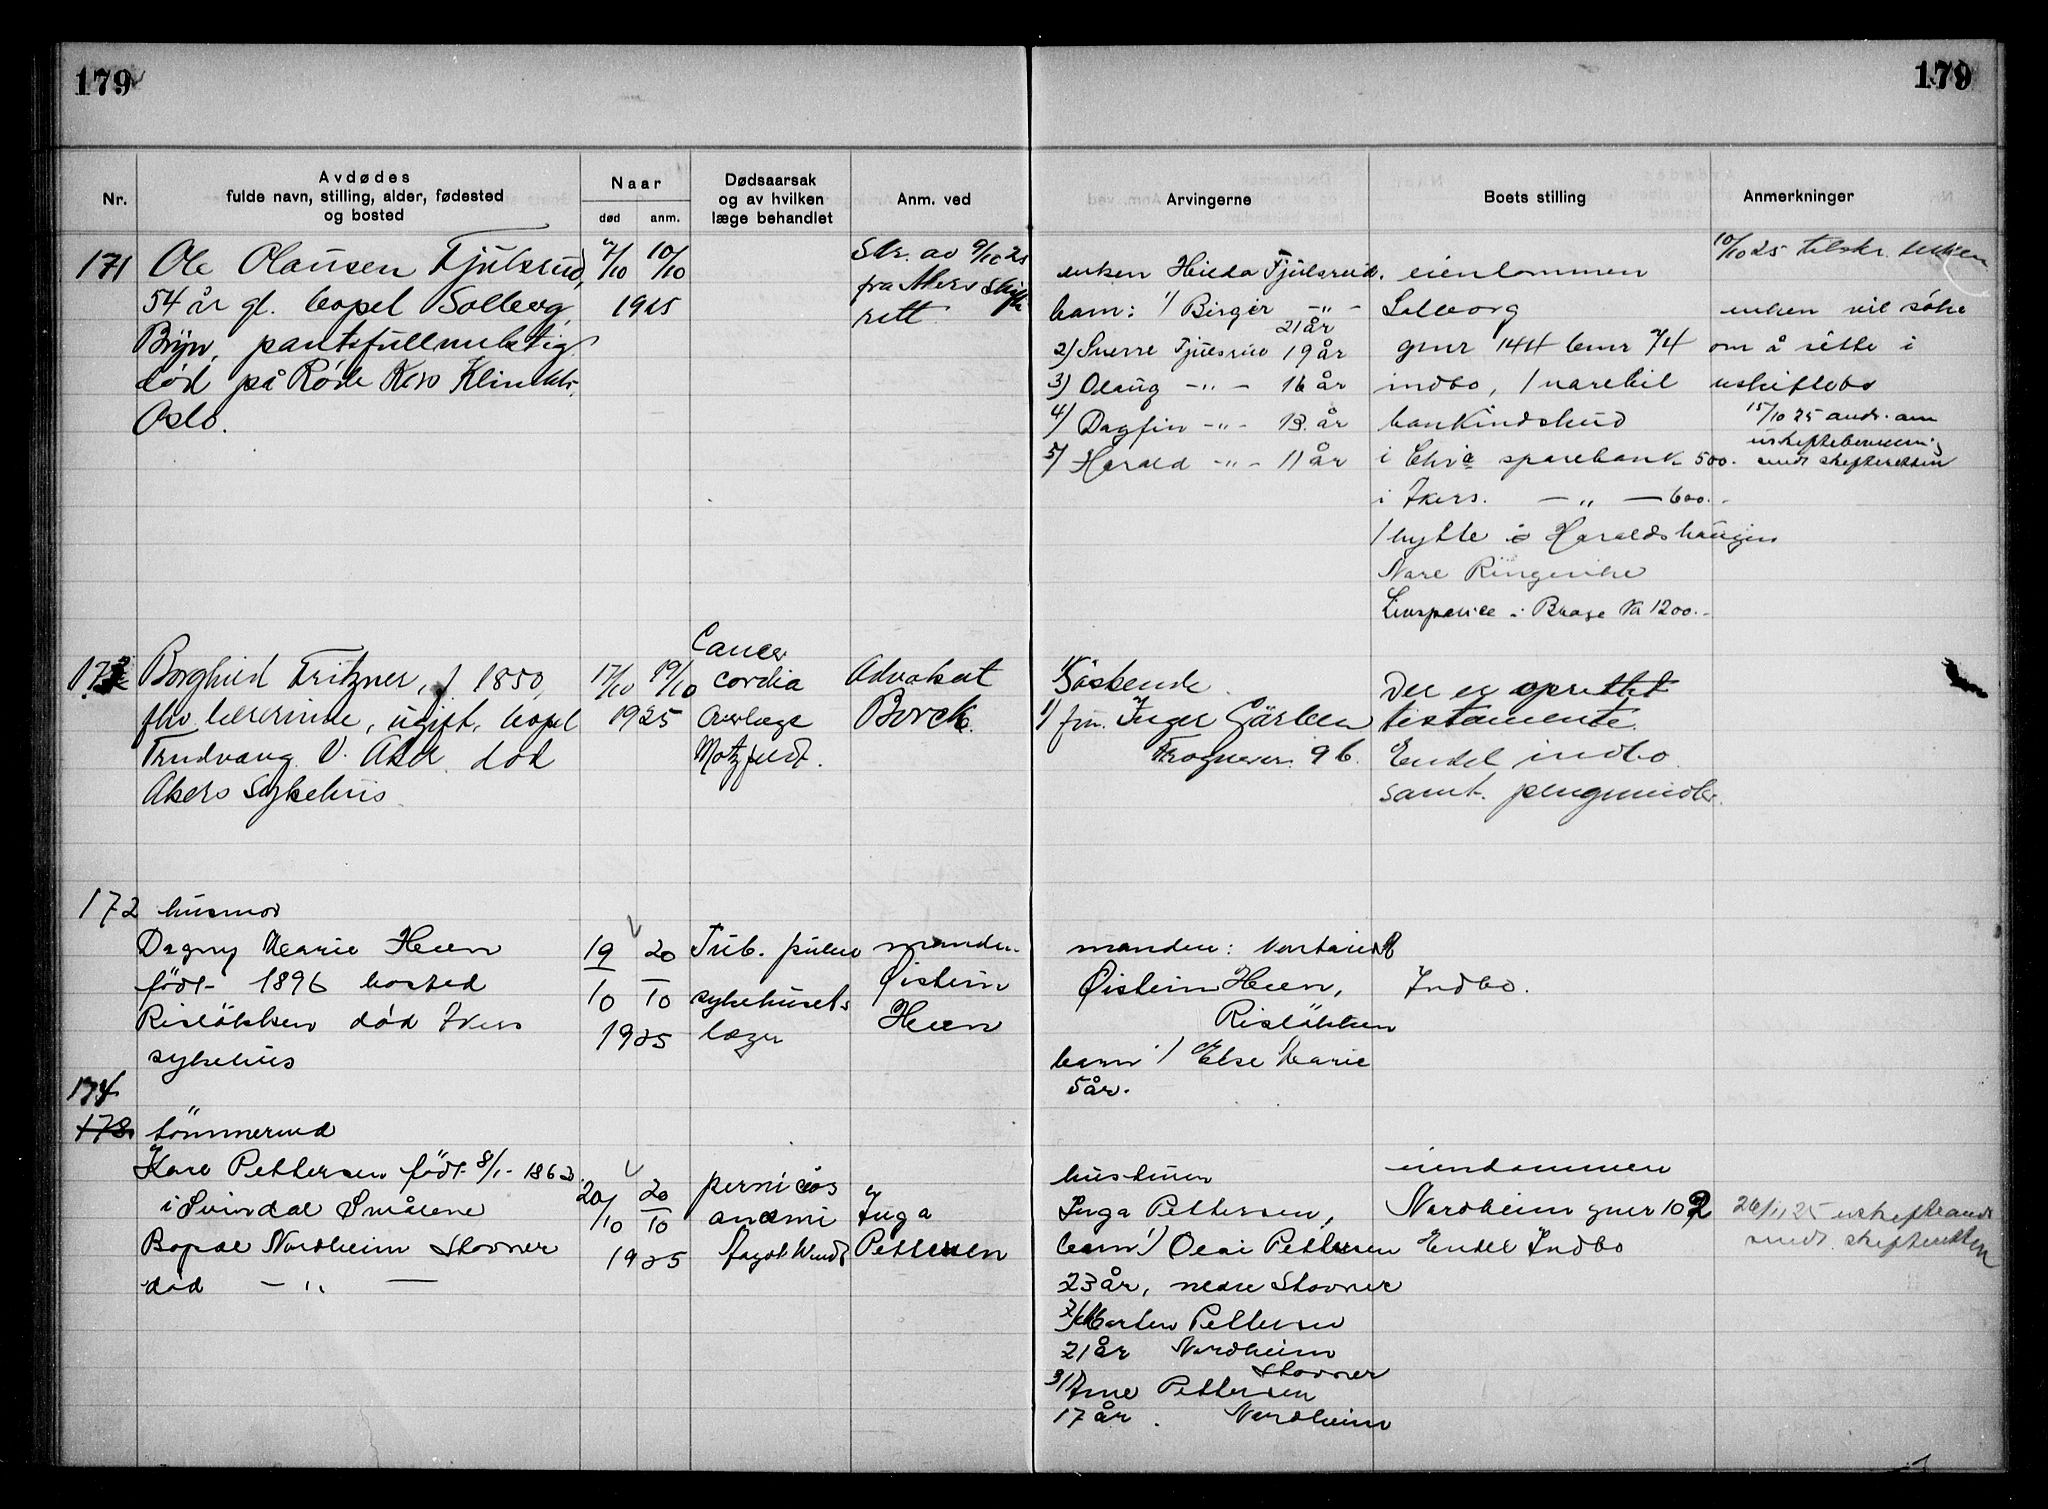 179
179
Nr.
Avdødes
fulde navn, stilling, alder, fødested
og bosted
Naar
død
anm.
Dødsaarsak
og av hvilken
læge behandlet
Anm. ved
Arvingerne
Boets stilling
Anmerkninger
171
Ole Olausen Fjulsrud,
54 år gl. bopel Solberg
Bryn, pantefullmektig
død på Røde Kors Klinikk,
Oslo.
7/10 10/10
1925
Skr. av 9/10 25
fra Akers skifte
rett
enken Hilda Fjulsrud.
barn: 1) Birger -"-
21 år
2) Sverre Fjulsrud 19 år
3) Olaug -"- 16 år
4) Dagfin -"- 13 år
5) Harald -"- 11 år
eiendommen
Solborg
gnr 144 bnr 74
indbo, 1 varebil
bankindskud
i Chra sparebank 500.-
i Akers. -"- 600.-
1 hytte i Haraldshaugen
Nore Ringerike
Livspolice i Brage Kr 1200.-
10/10 25 tilskr. enken
enken vil søke
om å sitte i
uskiftebo
15/10 25 andr. om
uskiftebevilling
sendt skifteretten
173
Borghild Fritzner, f. 1850,
fhv. lærerinde, ugift, bopel
Trudvang V. Aker død
Akers sykehus.
17/10 19/10
1925
Cancer
cordia
Overlæge
Motzfeldt.
Advokat
Borck.
Søskende
1) fru. Inger
Frognerv. 96.
Der er oprettet
testamente.
Endel indbo
samt. pengemidler.
172
husmor
Dagny Marie Heen
født 1896 bosted
Risløkken død Akers
sykehus
19 20
10 10
1925
Tub. pulm
sykehusets
læger
manden
Øistein
Heen
manden:
Øistein Heen,
Risløkken
barn 1) Else Marie
5 år.
Indbo.
174
173
tømmermd
Kare Pettersen født 8/1- 1863
i Svindal Smålene
Bopæl Nordheim Stovner
død -"-
20/10 20
10
1925
perniciøs
anæmi
Inga
Pettersen
hustruen
Inga Pettersen,
barn 1) Olai Pettersen
23 år, nedre Stovner
2) Morten Pettersen
21 år Nordheim
Stovner
3) Arne Pettersen
17 år. Nordheim
eiendommen
Nordheim gnr 102
Endel Indbo
26/11 25 uskifteandr
sendt skifteretten